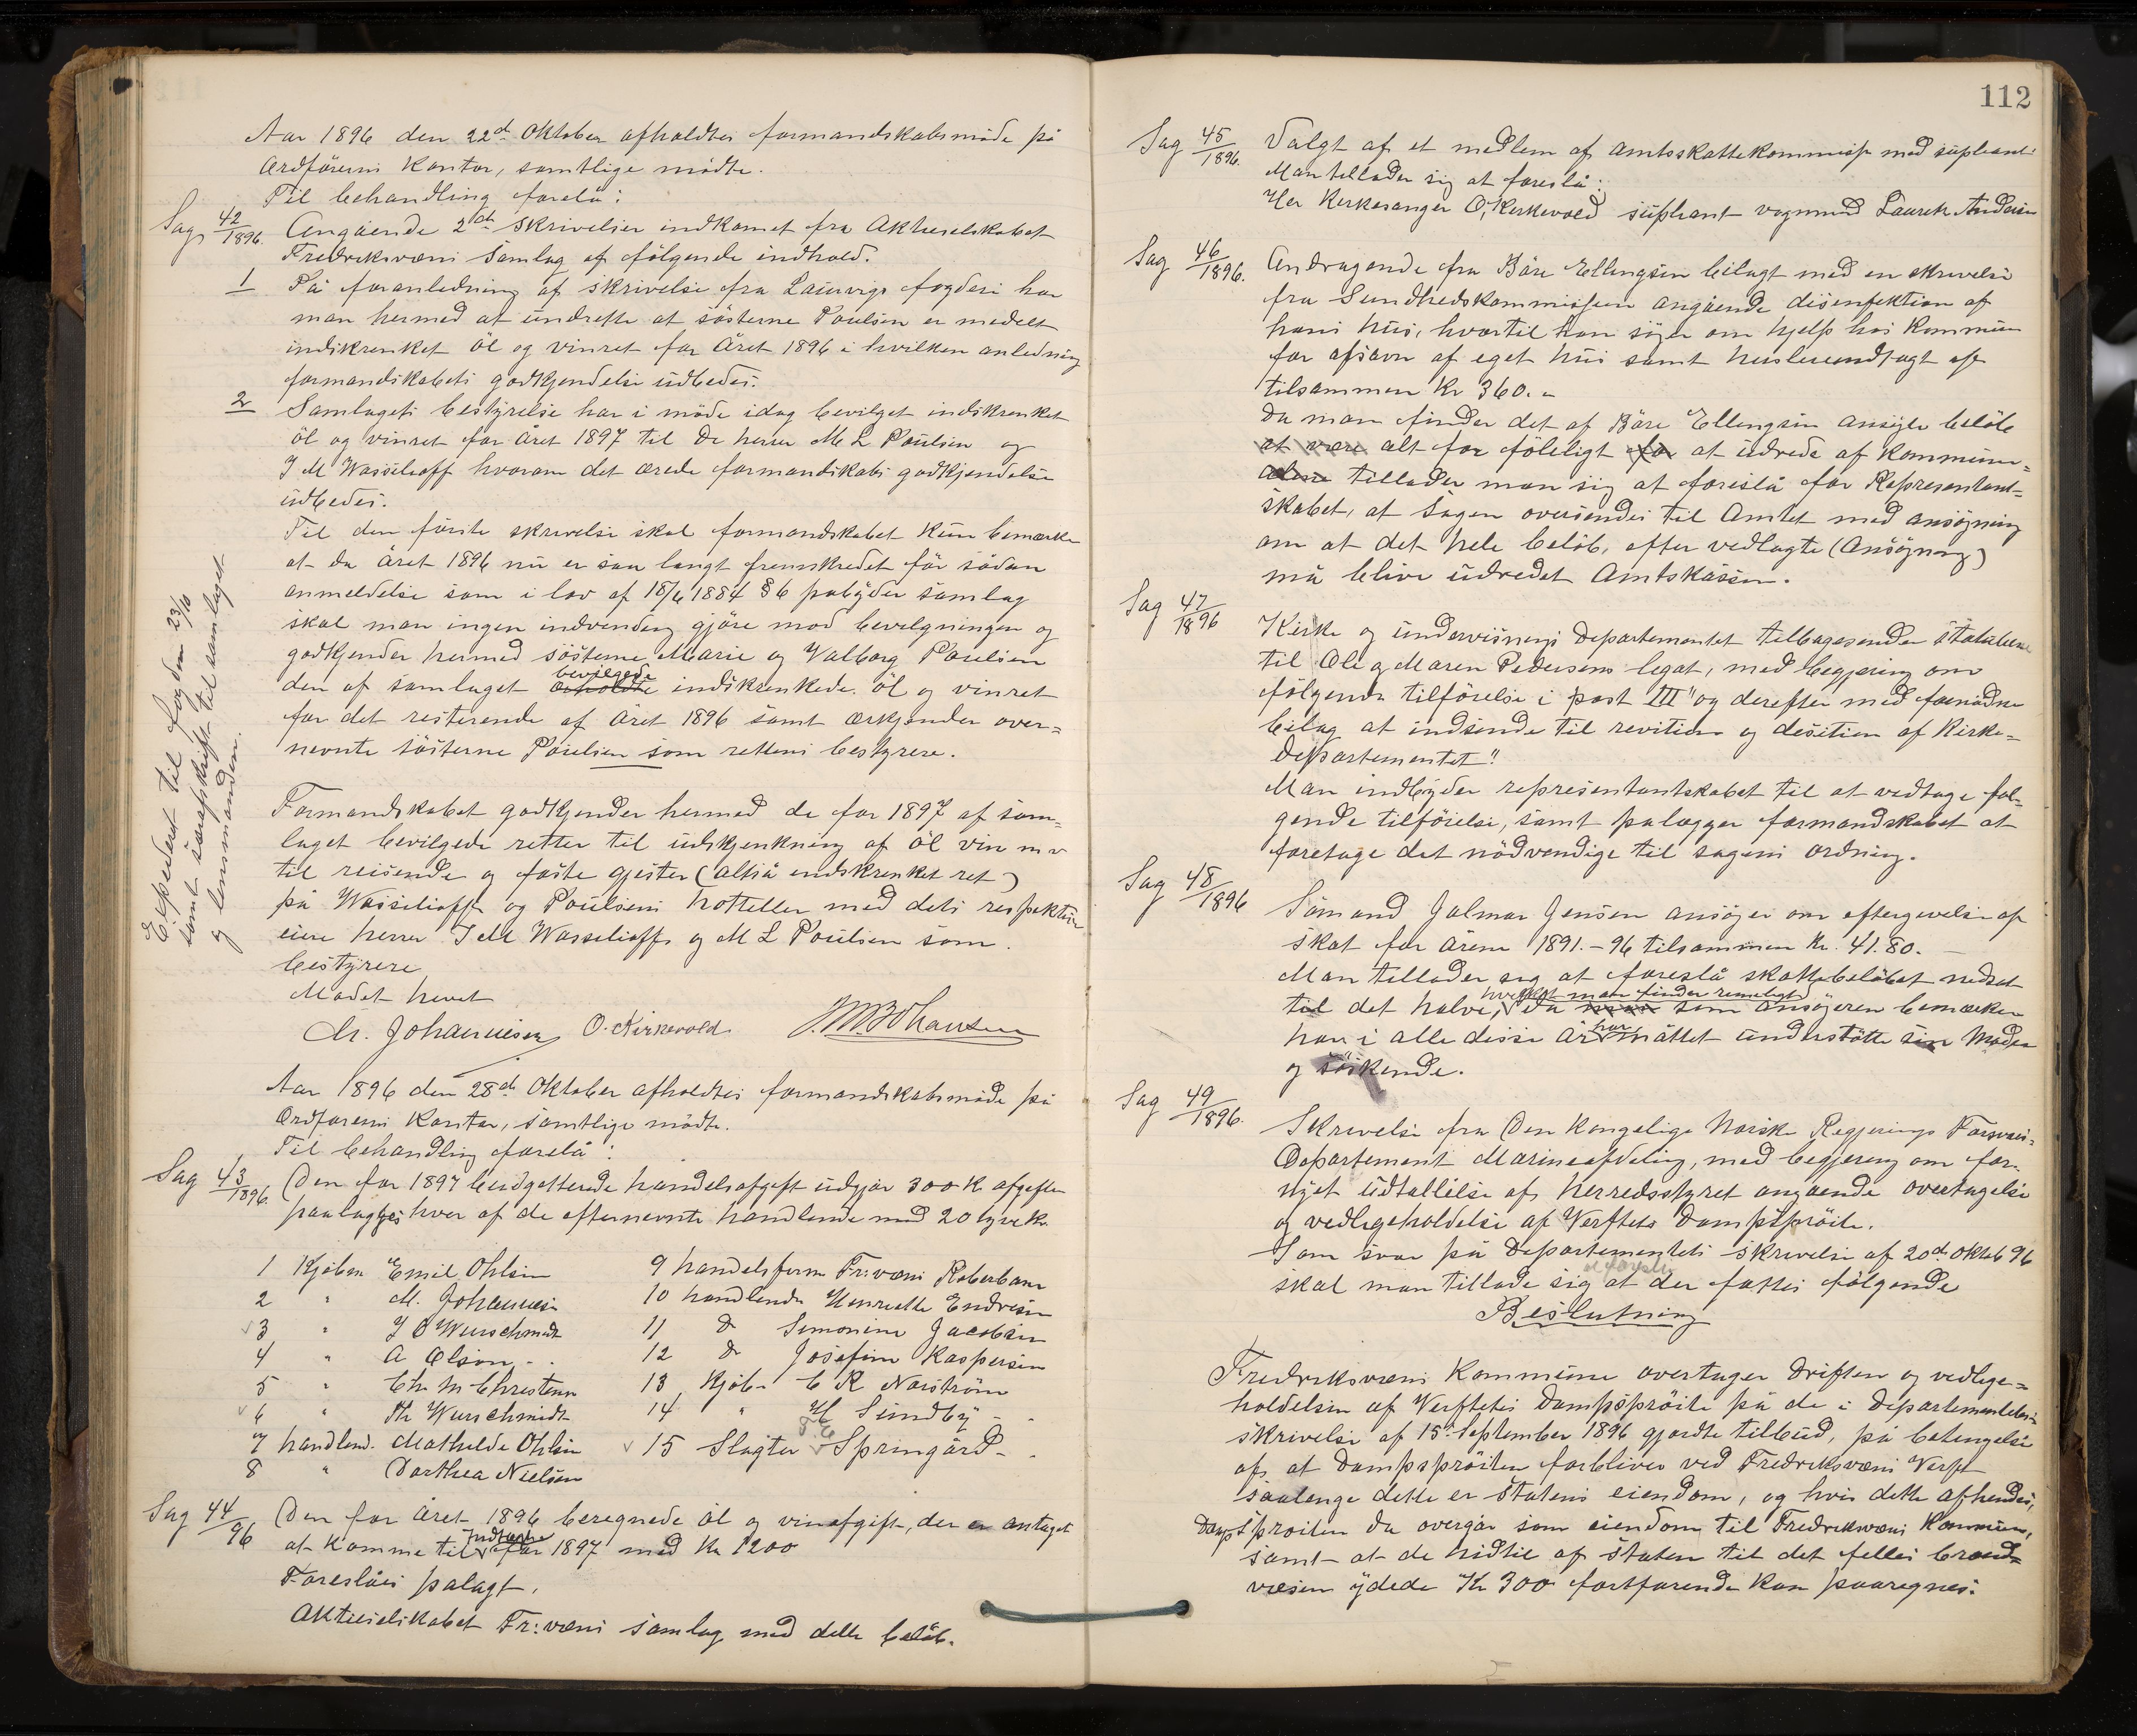 Aar 1896 den 22d Oktober afholdtes formandskabsmöde på
Ordförerens Kontor, samtlige mödte.
Til behandling forelå:
Sag 42/1896. Angående 2de skrivelser indkomet fra Aktieselskabet
Fredriksværns Samlag af følgende indhold.
1 På foranledning af skrivelse fra Laurvigs fogderi har
man hermed at undrette at söstrene Poulsen er medelt
indskrenket öl og vinret for Året 1896 i hvilken anledning
formandskabets godkjendelse udbedes.
2 Samlagets bestyrelse har i möde idag bevilget indskrenket
öl og vinret for året 1897 til De herrer M L Poulsen og
J M Wasselioff hvorom det ærede formandskabs godkjendelse
udbedes.
Til den förste skrivelse skal formandskabet kun bemærke
at da Året 1896 nu er saa langt fremskredet för sådan
anmeldelse som i lov af 18/6 1884 § 6 påbyder samlag
skal man ingen indvending gjöre mod bevilgningen og
godkjender hermed söstrene Marie og Valborg Poulsen
bevilgede
den af samlaget erholdte indskrenkede öl og vinret
for det resterende af året 1896 samt erkjender over=
nevnte söstrene Poulsen som rettens bestyrere.
Formandskabet godkjender hermed de for 1897 af sam=
laget bevilgede retter til udskjenkning af öl vin m v
til reisende og faste gjester (altså indskrenket ret)
på Wasselioffs og Poulsens hotteller med dets respektive
eiere herrer J M Wasselioffs og M L Poulsen som
bestyrere
Mödet hevet
M. Johannesen O. Kirkevold J. M. Johansen
Expederet til fogden 23/10
samt særafskrift til samlaget
og lensmanden.
Aar 1896 den 28de Oktober afholdtes formandskabsmöde på
Ordförerens Kontor, samtlige mödte.
Til behandling forelå:
Sag 43/1896. Den for 1897 budgetterede handelsafgift udgjör 300 K afgiften
paalagges hver af de efternevnte handlende med 20 tyve kr.
1 Kjöbm Emil Ohlsen
2 " M. Johannesen
3 " J O Wurschmidt
4 " A Olsen
5 " Chr M Christensen
6 " Th Wurschmidt
7 handlend. Mathilde Ohlsen
8 " Dorthea Nielsen
9 handelsferm Fr:væns Reberbane
10 handlende Henriette Endresen
11 D Simonine Jacobsen
12 D Josefine Kaspersen
13 Kjöb. C R Norström
14 " H Sundby
15 Slagter Springård
Sag 44/96 Den for Året 1896 beregnede öl og vinafgift, der er antaget
Indtægt
at komme til for 1897 med Kr 1200
Foreslåes pålagt.
Aktieselskabet Fr:væns samlag med dette belöb.
112
Sag 45/1896. Valgt af et medlem af amtsskattekommiss med supleant
Man tillader sig at foreslå:
Her Kirkesanger O, Kirkevold supleant vognmand Laurits Andersen
Sag 46/1896. Andragende fra Båre Ellingsen bilagt med en skrivelse
fra Sundhedskommissionen angående disenfektion af
hans hus, hvortil han söger om hjelp hos kommunen
for afsavn af eget hus samt husleieindtægt af
tilsammen Kr 360.-
Da man finder det af Båre Ellingsen ansögte belöb
at være alt for föleligt for at udrede af Kommunen=
alene tillader man sig at foreslå for Representant=
skabet, at Sagen oversendes til Amtet med ansögning
om at det hele belöb, efter vedlagte (Ansögning)
må blive udredet Amtskassen.
Sag 47/1896 Kirke og undervisnings Departementet tilbagesender statuterne
til Ole og Maren Pedersens legat, med begjering om
følgende tilförelse i post III "og derefter med fornödne
bilag at indsende til revition og desition af Kirke=
departementet"
Man indbyder representantskabet til at vedtage föl=
gende tilförelse, samt pålægger formandskabet at
foretage det nödvendige til sagens ordning.
Sag 48/1896 Sömand Jalmar Jensen ansöger om eftergivelse af
skat for årene 1891.-96 tilsammen Kr. 41.80.-
Man tillader sig at foreslå skattebelöbet nedsat
hvilket man finder rimeligt
til det halve, da man som ansögeren bemærker
har
han i alle disse år måttet understötte sin Moder
og söskende.
Sag 49/1896. Skrivelse fra Den Kongelige Norske Regjerings Forsvars=
Departement Marineafdeling, med begjering om for-
nyet udtallelse af herredsstyret angående overtagelse
og vedligeholdelse af Verftets Dampspröite.
Som svar på Departementets skrivelse af 20de Oktob 96
at foreslå
skal man tillade sig at der fattes følgende
Beslutning
Fredriksværns Kommune overtager Driften og vedlige=
holdelsen af Verftets Dampspröite på de i Departementets
skrivelse af 15de September 1896 gjordte tilbud, på betingelse
af, at Dampspröiten forbliver ved Fredriksværns Verft
saalenge dette er Statens eiendom, og hvis dette afhendes,
Dampspröiten da overgår som eiendom til Fredriksværns Kommune,
samt at de hidtil af staten til det felles brand=
væsen ydede Kr 300 fortfarende kan paaregnes.